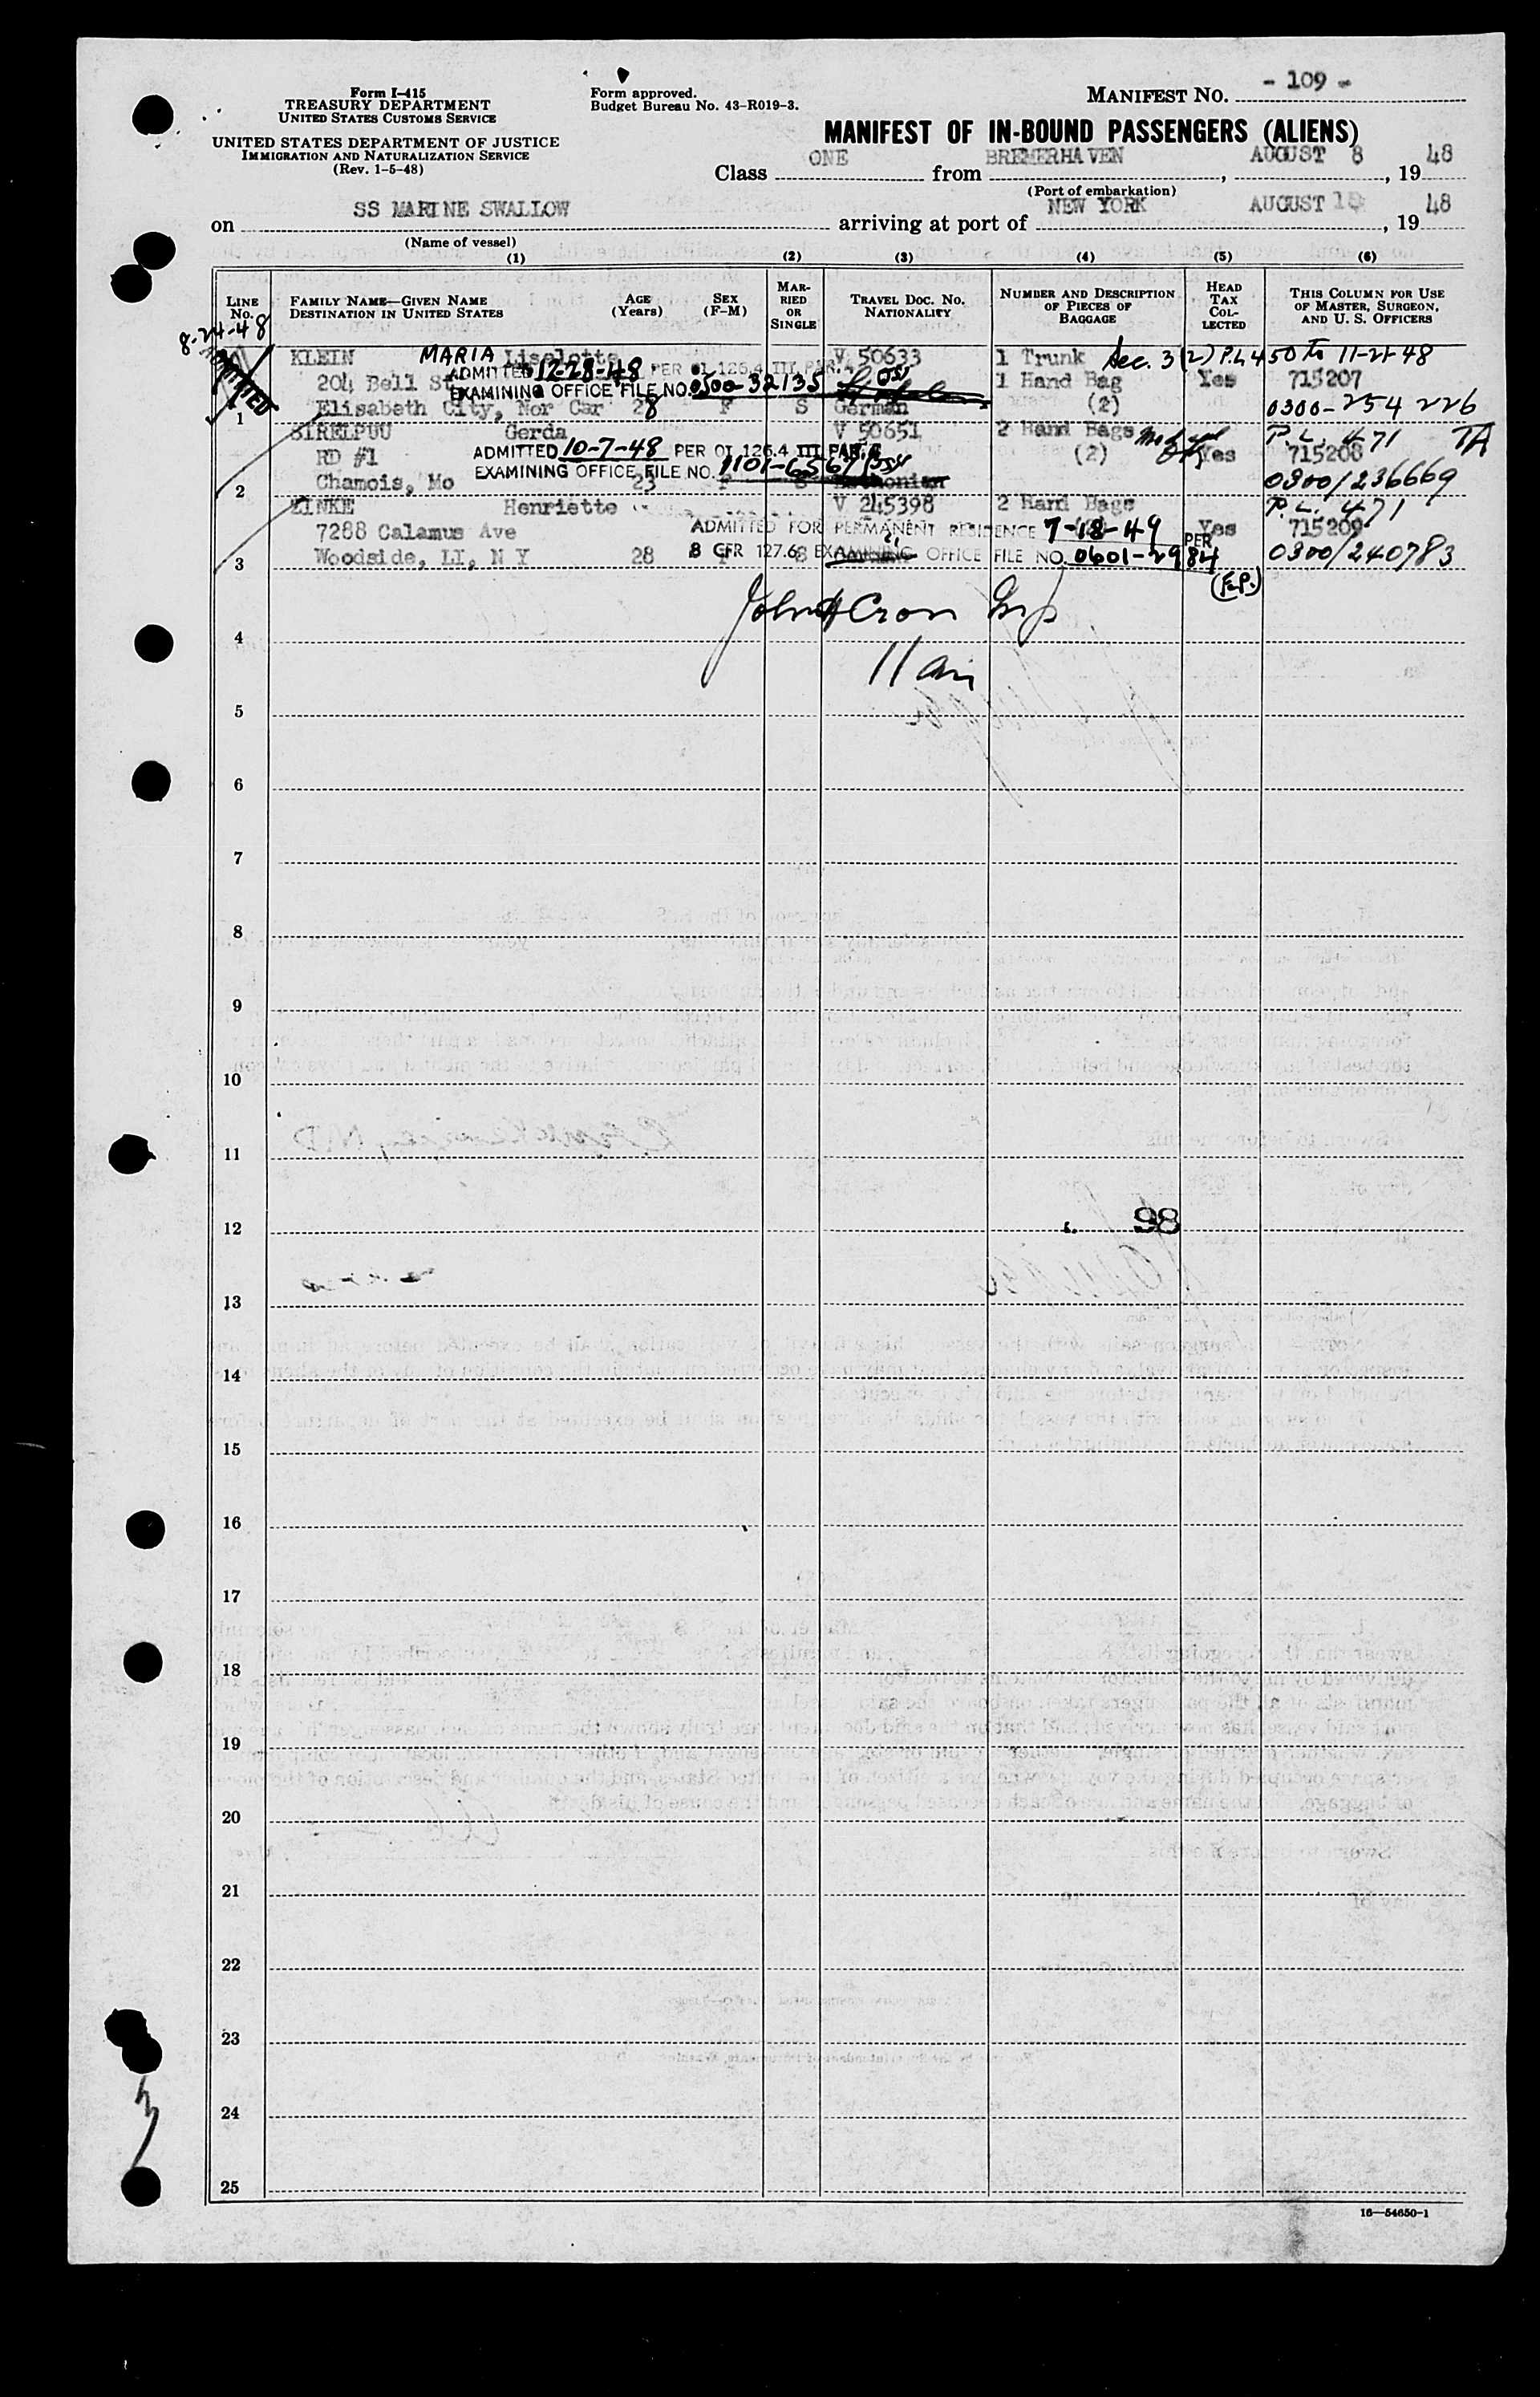 Form I-415
TREASURY DEPARTMENT
UNITED STATES CUSTOMS SERVICE
UNITED STATES DEPARTMENT OF JUSTICE
IMMIGRATION AND NATURALIZATION SERVICE
(Rev. 1-5-48)
Form approved.
Budget Bureau No. 43-R019-3.
MANIFEST NO. - 109 -
MANIFEST OF IN-BOUND PASSENGERS (ALIENS)
Class ONE from BREMERHAVEN, AUGUST 8, 1948
(Port of embarkation)
on SS MARINE SWALLOW arriving at port of NEW YORK AUGUST 18, 1948
(Name of vessel)
(1) (2) (3) (4) (5) (6)
LINE No. FAMILY NAME—GIVEN NAME DESTINATION IN UNITED STATES AGE (Years) SEX (F-M) MARRIED OR SINGLE TRAVEL DOC. NO. NATIONALITY NUMBER AND DESCRIPTION OF PIECES OF BAGGAGE HEAD TAX COLLECTED THIS COLUMN FOR USE OF MASTER, SURGEON, AND U. S. OFFICERS
8-24-48
ADMITTED
KLEIN MARIA Liselotte V 50633 1 Trunk Sec. 3(2) P.L. 450 to 11-21-48
204 Bell St ADMITTED 12-28-48 PER OI 126.4 III PAR. 4 1 Hand Bag Yes 715207
EXAMINING OFFICE FILE NO. 0500-32135
1 Elisabeth City, Nor Car 28 F S German (2) 0300-254226
SIRELPUU Gerda V 50651 2 Hand Bags P.L. 471 TA
RD #1 ADMITTED 10-7-48 PER OI 126.4 III PAR. (2) Yes 715208
EXAMINING OFFICE FILE NO. 1101-6567
2 Chamois, Mo 23 F S Esthonian 0300/236669
ZINKE Henriette V 245398 2 Hand Bags P.L. 471
7288 Calamus Ave ADMITTED FOR PERMANENT RESIDENCE 7-18-49 PER Yes 715209
8 CFR 127.6 EXAMINING OFFICE FILE NO. 0601-2984
3 Woodside, LI, N Y 28 F S 0300/240783
(F.P.)
John A Cron Insp
4
11 am
5
6
7
8
9
10
11
12 98
13
14
15
16
17
18
19
20
21
22
23
24
25
16—54650-1
3